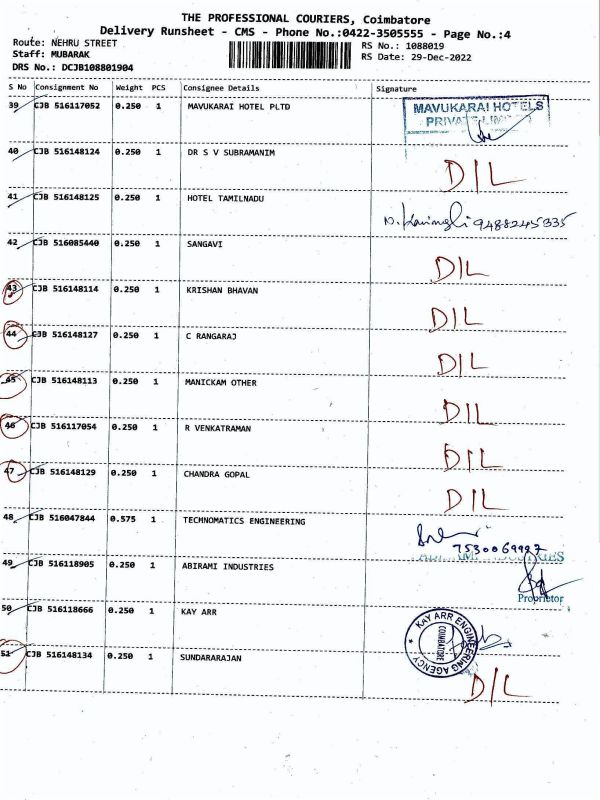 THE PROFESSIONAL COURIERS, Coimbatore
Delivery Runsheet - CMS - Phone No.:0422-3505555 - Page No.:4
Route: NEHRU STREET RS No.: 1088019
Staff: MUBARAK RS Date: 29-Dec-2022
DRS No.: DCJB108801904
S No Consignment No Weight PCS Consignee Details Signature
39 CJB 516117052 0.250 1 MAVUKARAI HOTEL PLTD MAVUKARAI HOTELS
PRIVATE
40 CJB 516148124 0.250 1 DR S V SUBRAMANIM
D/L
41 CJB 516148125 0.250 1 HOTEL TAMILNADU
9488245335
42 CJB 516085440 0.250 1 SANGAVI
D/L
43 CJB 516148114 0.250 1 KRISHAN BHAVAN
D/L
44 CJB 516148127 0.250 1 C RANGARAJ
D/L
45 CJB 516148113 0.250 1 MANICKAM OTHER
D/L
46 CJB 516117054 0.250 1 R VENKATRAMAN
D/L
47 CJB 516148129 0.250 1 CHANDRA GOPAL
D/L
48 CJB 516047844 0.575 1 TECHNOMATICS ENGINEERING
49 CJB 516118905 0.250 1 ABIRAMI INDUSTRIES
Proprietor
50 CJB 516118666 0.250 1 KAY ARR KAY ARR ENGINEERING AGENCY
COIMBATORE
51 CJB 516148134 0.250 1 SUNDARARAJAN
D/L